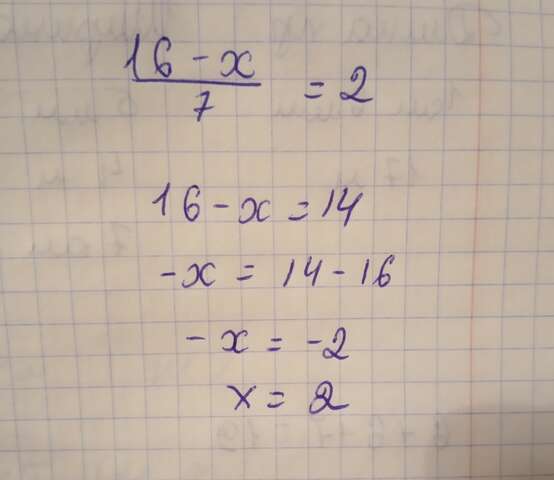 16 - x
7 = 2
16 - x = 14
-x = 14 - 16
-x = -2
x = 2